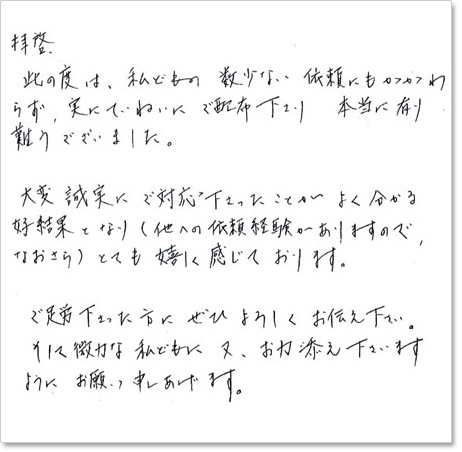 拝啓
此の度は、私どもの数少ない依頼にもかかわ
らず、実にていねいにご配布下さり 本当に有り
難うございました。
大変誠実にご対応下さったことがよく分かる
好結果となり(他への依頼経験がありますので、
なおさら)とても嬉しく感じております。
ご足労下さった方にぜひよろしくお伝え下さい。
そして微力な私どもに又、お力添え下さいます
ようにお願い申しあげます。